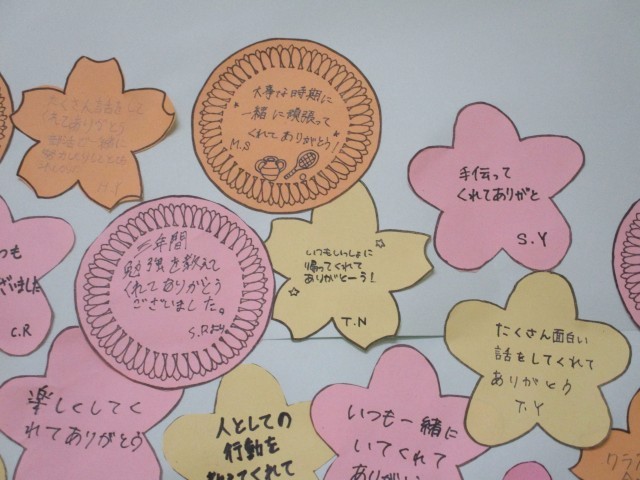 たくさん話をして
くれてありがとう
大事な時期に
一緒に頑張って
くれてありがとう!
M.S
手伝って
くれてありがと
S.Y
いつも
ざいました
C.R
三年間
勉強を教えて
くれてありがとう
ございました。
S.Rより
いつもいっしょに
帰ってくれて
ありがとーう!
T.N
たくさん面白い
話をしてくれて
ありがとう
T.Y
楽しくしてく
れてありがとう
人としての
行動を
教えてくれて
いつも一緒に
いてくれて
ありがとう
クラス